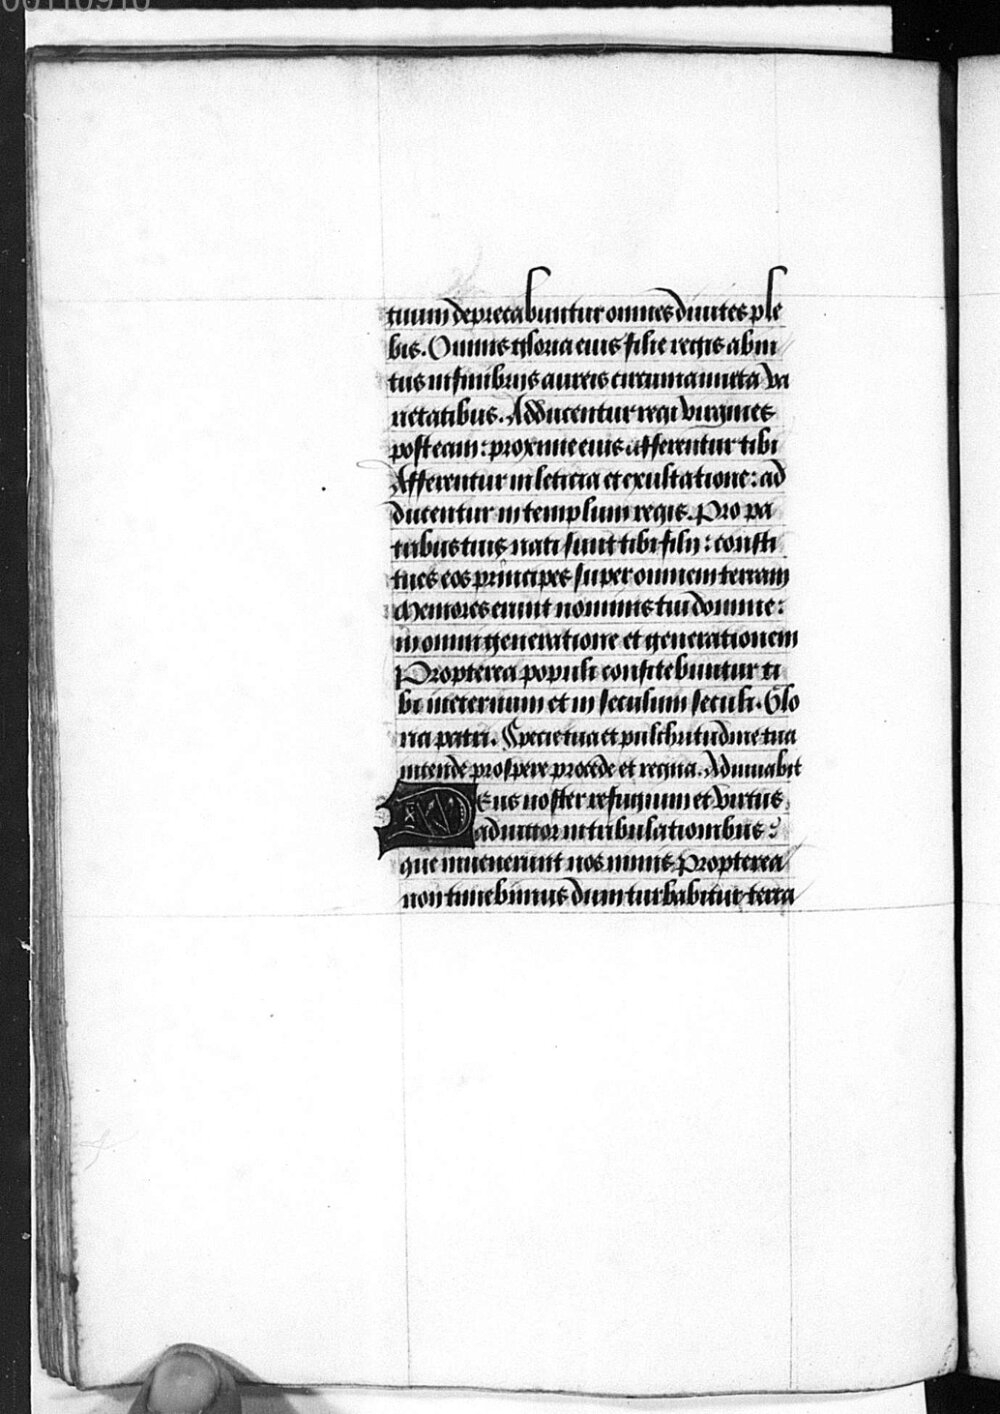 00110910
tuum deprecabuntur omnes diuites ple
bis. Omnis gloria eius filie regis ab in
tus in fimbrijs aureis circumamicta va
rietatibus. Adducentur regi virgines
post eam: proxime eius afferentur tibi
Afferentur in leticia et exultatione: ad
ducentur in templum regis. Pro pa
tribus tuis nati sunt tibi filij: consti
tues eos principes super omnem terram
Memores erunt nominis tui domine:
in omni generatione et generationem
Propterea populi confitebuntur ti
bi in eternum et in seculum seculi. Glo
ria patri. Specie tua et pulchritudine tua
intende prospere procede et regna. Adiuuabit
Deus noster refugium et virtus
adiutor in tribulationibus:
que inuenerunt nos nimis. Propterea
non timebimus dum turbabitur terra